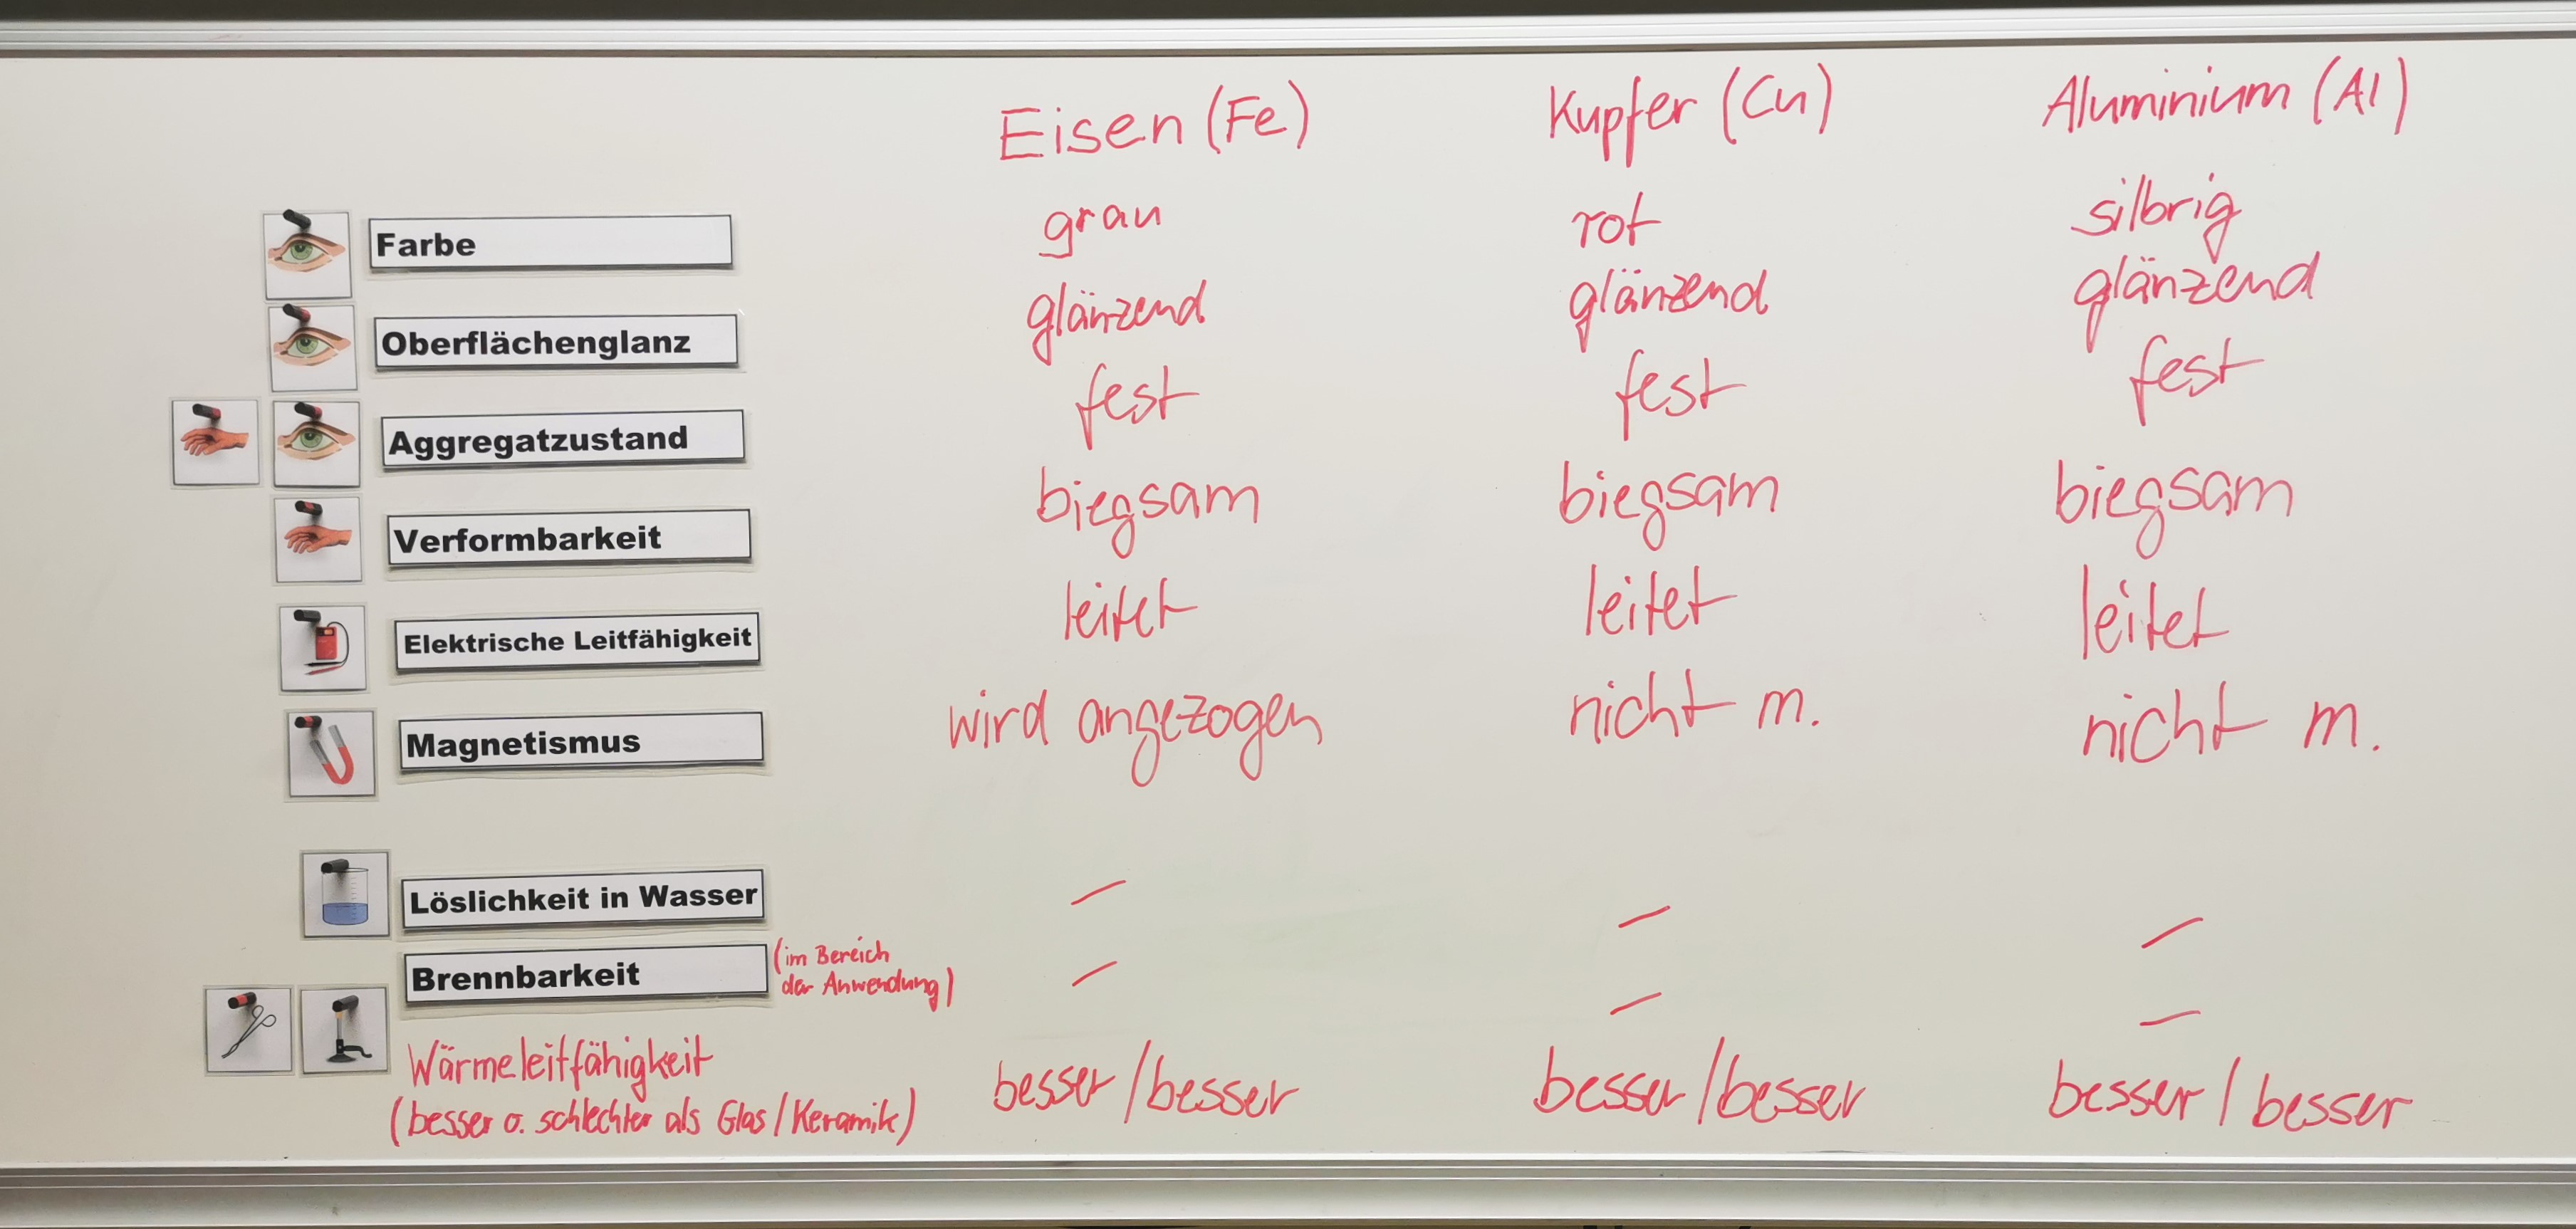 Eisen (Fe) Kupfer (Cu) Aluminium (Al)
Farbe grau rot silbrig
Oberflächenglanz glänzend glänzend glänzend
Aggregatzustand fest fest fest
Verformbarkeit biegsam biegsam biegsam
Elektrische Leitfähigkeit leitet leitet leitet
Magnetismus wird angezogen nicht m. nicht m.
Löslichkeit in Wasser – – –
Brennbarkeit (im Bereich der Anwendung) – – –
Wärmeleitfähigkeit besser/besser besser/besser besser/besser
(besser o. schlechter als Glas/Keramik)